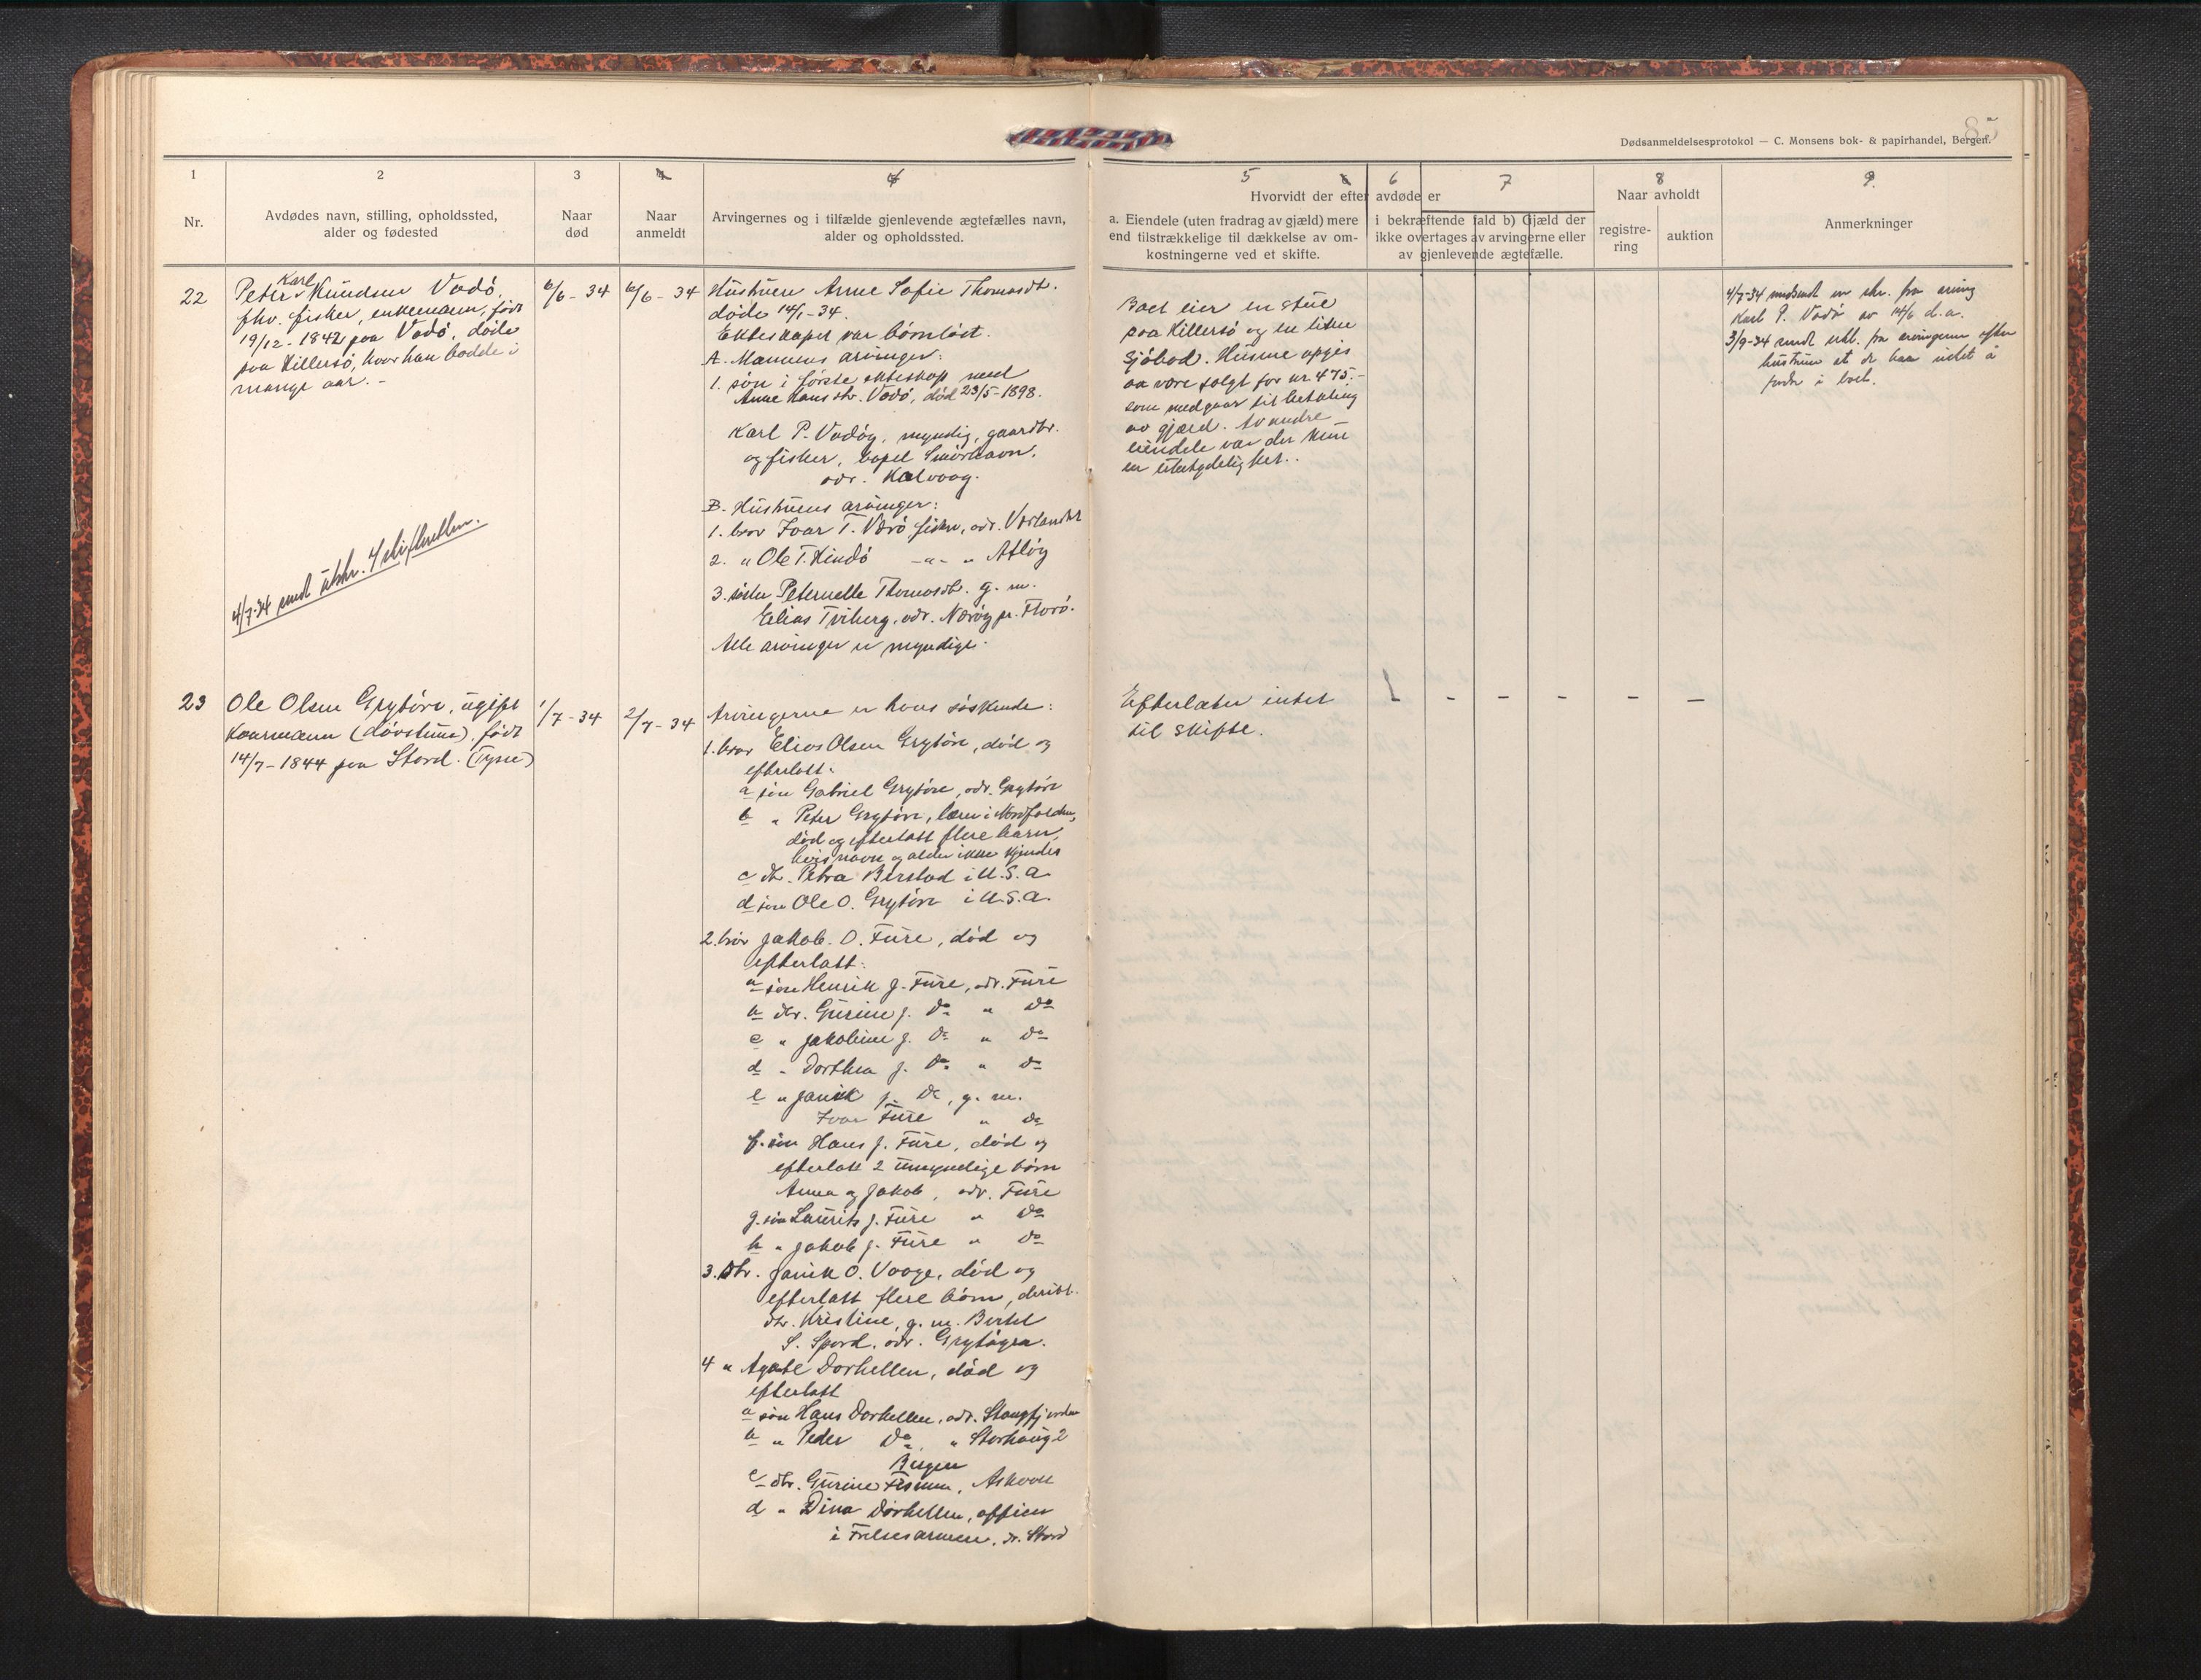 85
Dødsanmeldelsesprotokol — C. Monsens bok- & papirhandel, Bergen.
1 2 3 4 4 5 6 6 7 8 9.
Nr.
Avdødes navn, stilling, opholdssted,
alder og fødested
Naar
død
Naar
anmeldt
Arvingernes og i tilfælde gjenlevende ægtefælles navn,
alder og opholdssted.
Hvorvidt der efter avdøde er
a. Eiendele (uten fradrag av gjæld) mere
end tilstrækkelige til dækkelse av om-
kostningerne ved et skifte.
i bekræftende fald b) Gjæld der
ikke overtages av arvingerne eller
av gjenlevende ægtefælle.
Naar avholdt
registre-
ring
auktion
Anmerkninger
22
Karl
Peter Knudsen Vadö,
fhv. fisker, enkemann, født
19/12-1842 paa Vadö, døde
paa Hillersö, hvor han bodde i
mange aar. -
6/6-34
6/6-34
Hustruen Anne Sofie Thomasdt.
døde 14/1-34.
Ekteskapet var börnlöst.
A. Mannens arvinger:
1. sön i förste ekteskap med
Anne Hansdtr. Vadö, död 23/5-1898.
Karl P. Vadöy, myndig, gaardbr.
og fisker, bopel Smörhavn,
adr. Kalvaag.
B. Hustruens arvinger:
1. bror Ivar T. Værö fisker, adr. Værlandet
2. " Ole T. Hindö -"- " Atlöy
3. söster Peternelle Thomasdt. g. m.
Elias Tviberg, adr. Næröy pr. Florö.
Alle arvinger er myndige.
Boet eier en stue
paa Hillersö og en liten
Sjöbod. Husene opgis
aa være solgt for kr 475.-
som medgaar til betaling
av gjæld. Av andre
eiendele var der kun
en ubetydelighet.
4/7-34 mottat en skr. fra arving
Karl P. Vadö av 14/6 d.a.
3/9-34 sendt erkl. fra arvingerne efter
hustruen at de har intet å
fordre i boet.
4/7-34 sendt utskr. t skifteretten.
23
Ole Olsen Grytöira, ugift
Kaarmann (dövstum), født
14/7-1844 paa Stord. (Tysse)
1/7-34
2/7-34
Arvingerne er hans söskende:
1. bror Elias Olsen Grytöira, död og
efterlatt:
a sön Gabriel Grytöira, adr. Grytöira
b " Peter Grytöira, lærer i Nordfolden,
död og efterlatt flere barn,
hvis navn og alder ikke kjendes
c dtr. Petra Berstad i U.S.A.
d sön Ole O. Grytöira i U.S.A.
2. bror Jakob O. Fure, död og
efterlatt:
a sön Henrik J. Fure, adr. Fure
b dtr. Gurine J. do " do
c " Jakobine J. do " do
d " Dorthea J. do " do
e " Janik J. do, g. m.
Ivar Fure " do
f. sön Hans J. Fure, död og
efterlatt 2 umyndige börn
Anna og Jakob, adr. Fure
g. sön Laurits J. Fure " do
h " Jakob J. Fure " do
3. dtr. Janik O. Vaage, död og
efterlatt flere börn, deribl.
dtr. Kristine, g. m. Bertel
S. Spord, adr. Grytöyra.
4 " Agate Dorhellen, död og
efterlatt
a sön Hans Dorhellen, adr. Stangfjorden
b " Peder do, " Storhaug 2
Bergen
c dtr. Gurine, Askvoll
d " Dina Dorhellen, officer
i Frelsesarmeen, Stord
Efterlater intet
til skifte.
- - - - -